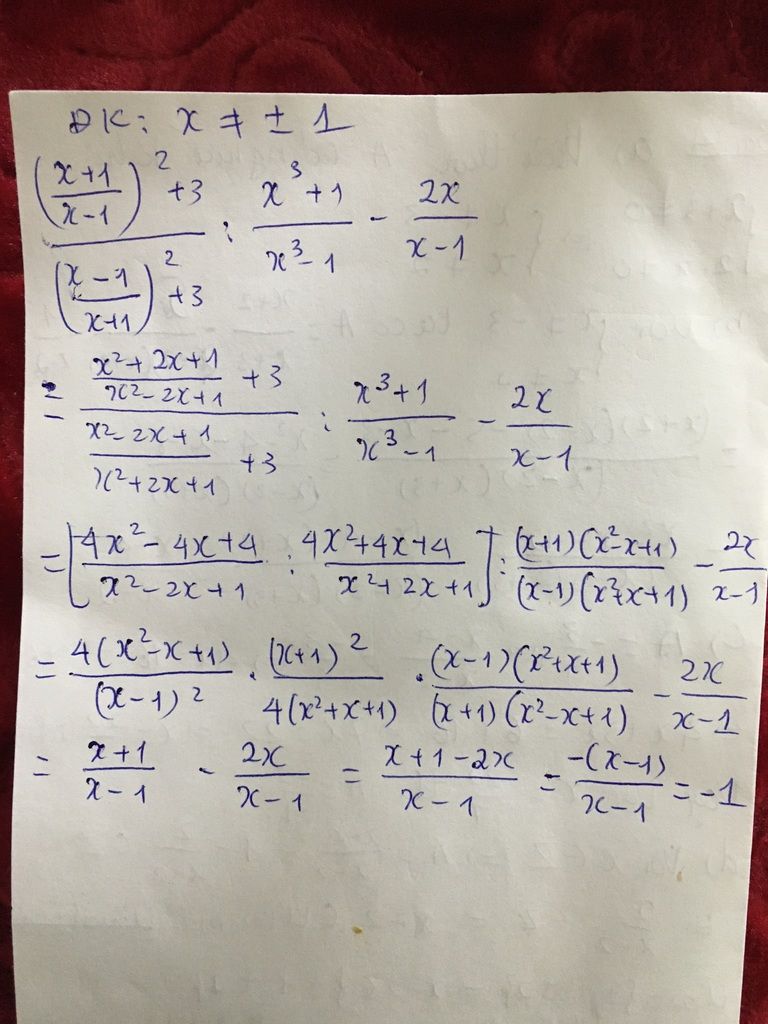 ĐK: x ≠ ± 1
(((x+1)/(x-1))² +3)/(((x-1)/(x+1))² +3) : (x³+1)/(x³-1) - 2x/(x-1)
= ((x²+2x+1)/(x²-2x+1) +3)/((x²-2x+1)/(x²+2x+1) +3) : (x³+1)/(x³-1) - 2x/(x-1)
= [(4x²-4x+4)/(x²-2x+1) : (4x²+4x+4)/(x²+2x+1)] : ((x+1)(x²-x+1))/((x-1)(x²+x+1)) - 2x/(x-1)
= (4(x²-x+1))/((x-1)²) . ((x+1)²)/(4(x²+x+1)) . ((x-1)(x²+x+1))/((x+1)(x²-x+1)) - 2x/(x-1)
= (x+1)/(x-1) - 2x/(x-1) = (x+1-2x)/(x-1) = (-(x-1))/(x-1) = -1